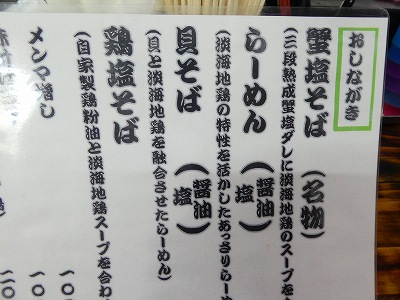 おしながき
蟹塩そば（名物）
（三段熟成蟹塩ダレに淡海地鶏のスープを
らーめん（醤油 塩）
（淡海地鶏の特性を活かしたあっさりらー
貝そば（醤油 塩）
（貝と淡海地鶏を融合させたらーめん）
鶏塩そば
（自家製鶏粉油と淡海地鶏スープを合わ
メンマ増し
一〇
一〇
一〇